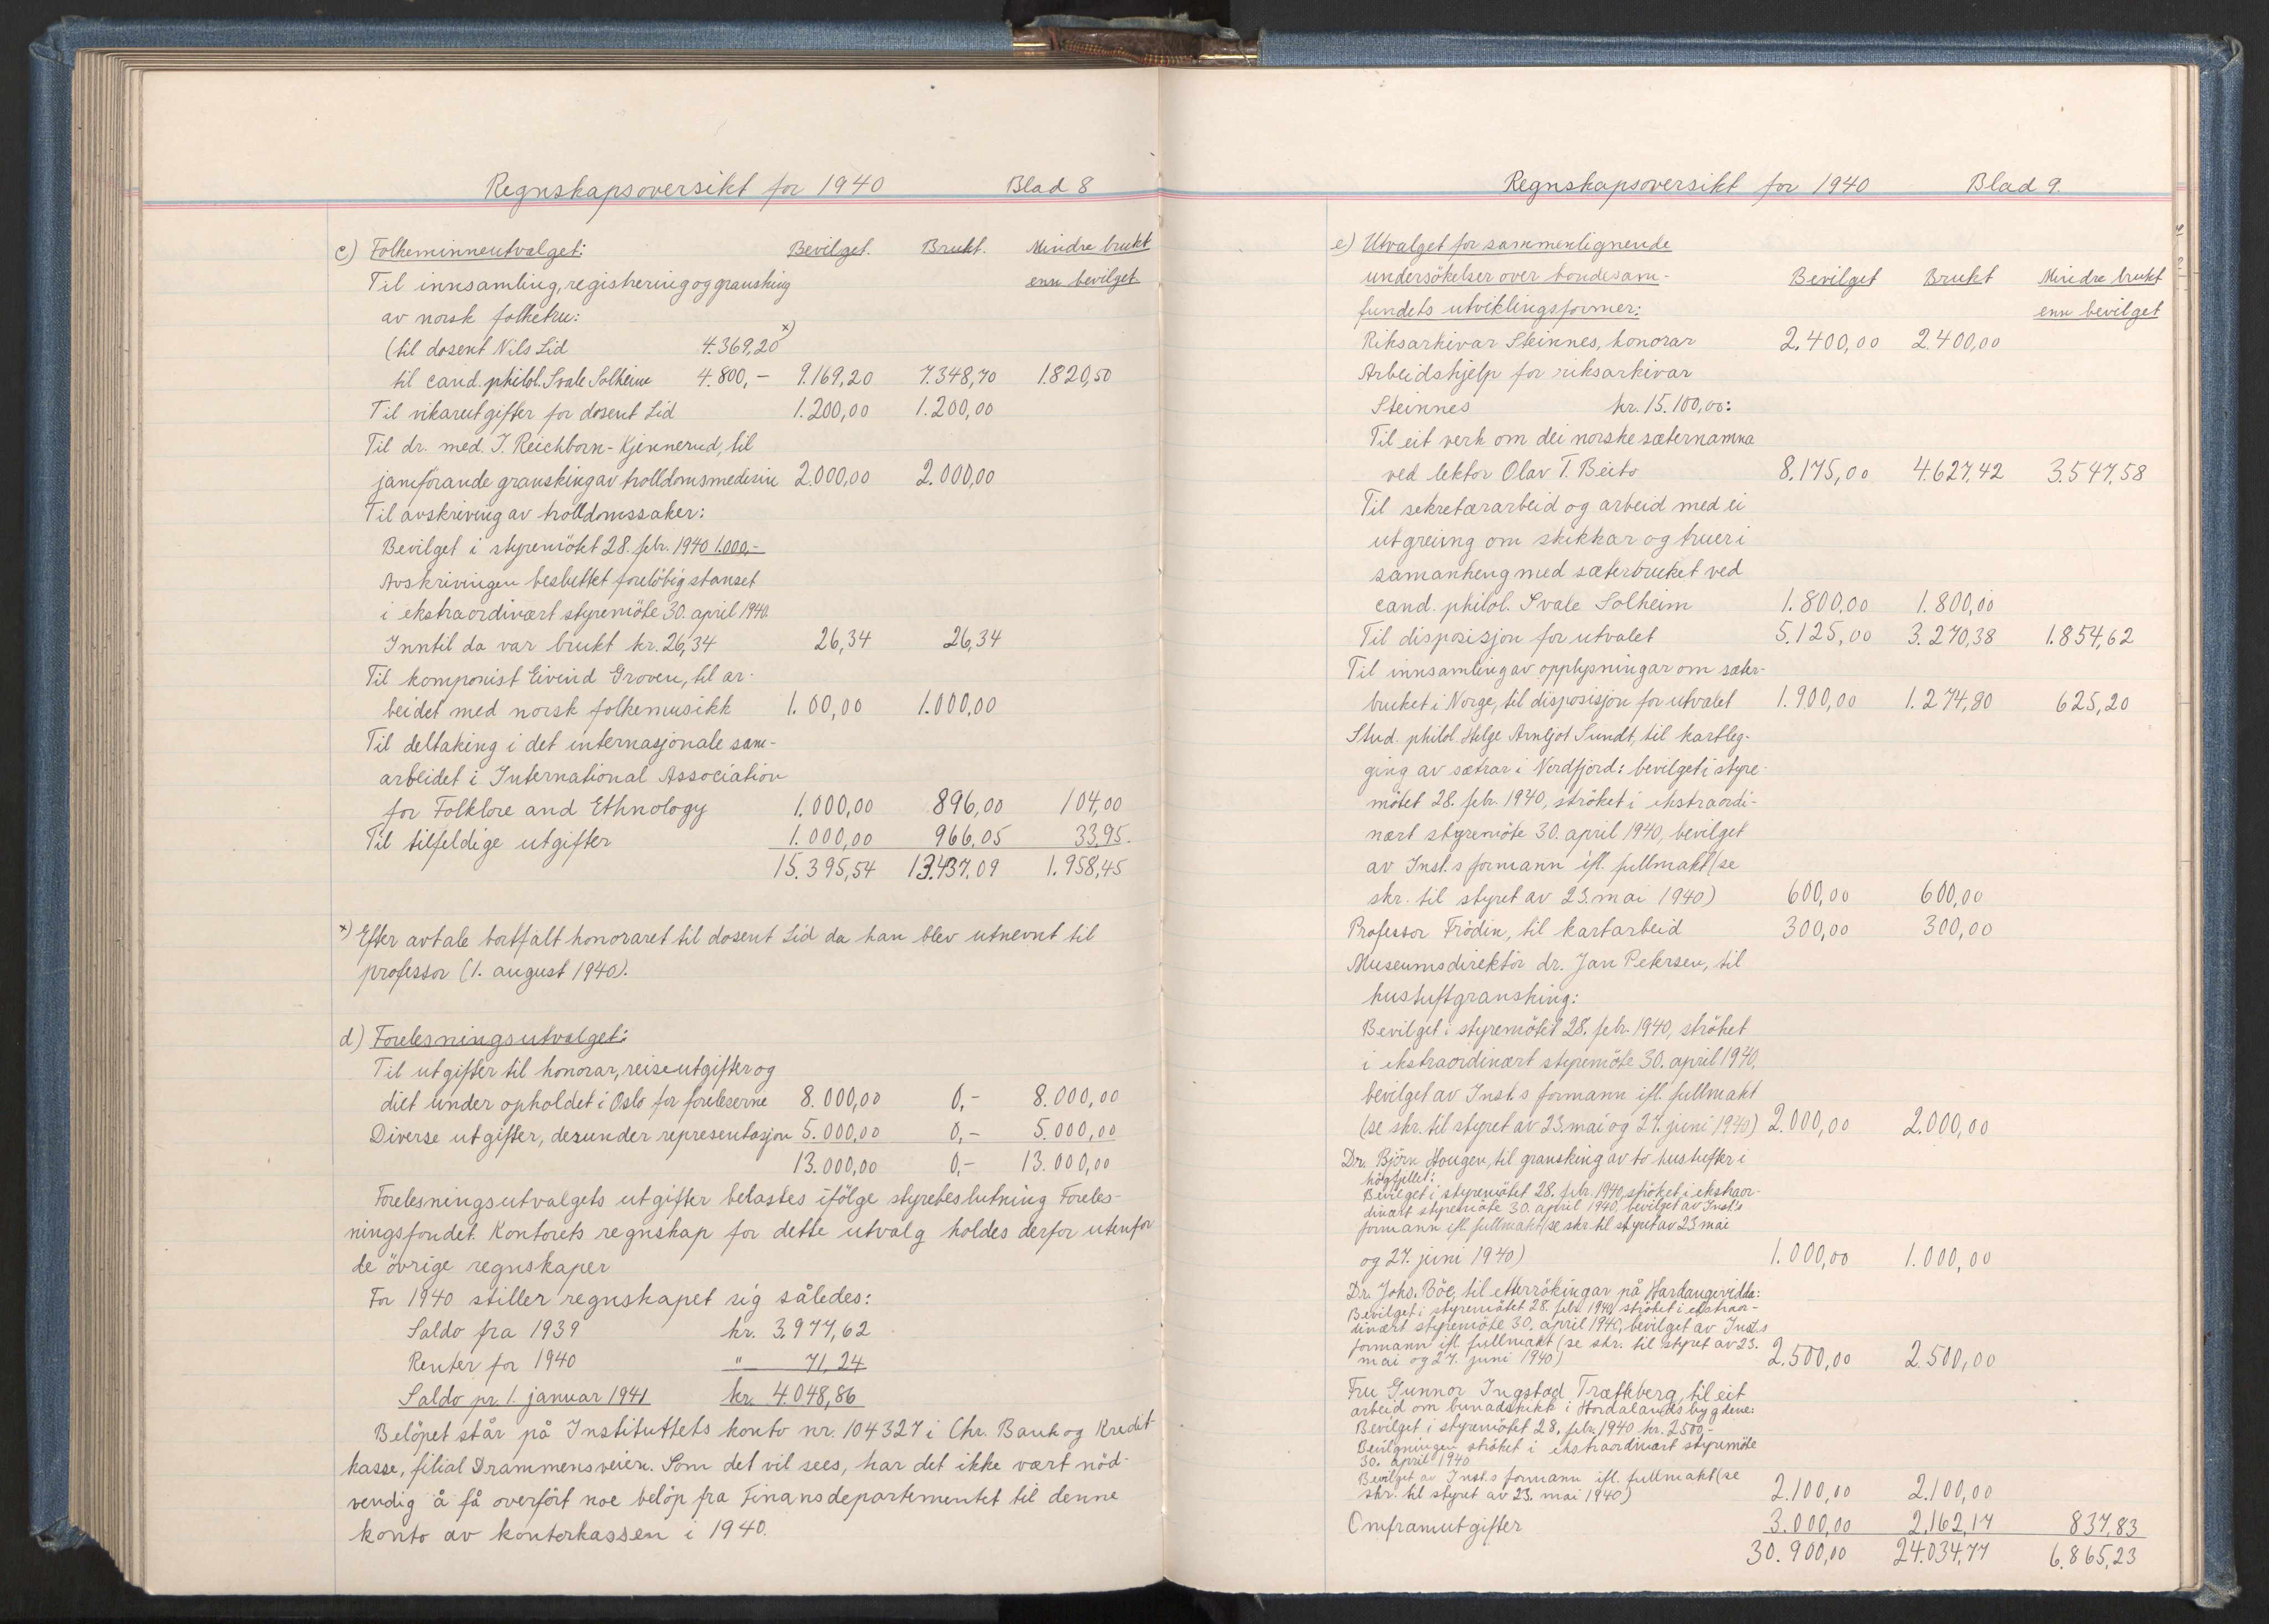 Regnskapsoversikt for 1940 Blad 8
c) Folkeminneutvalget: Bevilget. Brukt. Mindre brukt
Til innsamling, registrering og gransking enn bevilget
av norsk folketru:
(til dosent Nils Lid 4.369,20 x)
til cand. philol. Svale Solheim 4.800,- 9.169,20 7.348,70 1.820,50
Til vikarutgifter for dosent Lid 1.200,00 1.200,00
Til dr. med. I. Reichborn-Kjennerud, til
jamförande gransking av trolldomsmedisin 2.000,00 2.000,00
Til avskriving av trolldomssaker:
Bevilget i styremötet 28. febr. 1940 1.000,-
Avskrivingen besluttet forelöbig stanset
i ekstraordinært styremöte 30. april 1940.
Inntil da var brukt kr. 26,34 26,34 26,34
Til komponist Eivind Groven, til ar-
beidet med norsk folkemusikk 1. 00,00 1.000,00
Til deltaking i det internasjonale sam-
arbeidet i International Association
for Folklore and Ethnology 1.000,00 896,00 104,00
Til tilfeldige utgifter 1.000,00 966,05 33,95.
15.395,54 13.437,09 1.958,45
x) Efter avtale bortfalt honoraret til dosent Lid da han blev utnevnt til
professor (1. august 1940).
d) Forelesningsutvalget:
Til utgifter til honorar, reiseutgifter og
diet under opholdet i Oslo for foreleserne 8.000,00 0,- 8.000,00
Diverse utgifter, derunder representasjon 5.000,00 0,- 5.000,00
13.000,00 0,- 13.000,00
Forelesningsutvalgets utgifter belastes ifölge styrebeslutning Foreles-
ningsfondet. Kontorets regnskap for dette utvalg holdes derfor utenfor
de övrige regnskaper
For 1940 stiller regnskapet sig således:
Saldo fra 1939 kr. 3.977,62
Renter for 1940 " 71,24
Saldo pr. 1. januar 1941 kr. 4.048,86
Belöpet står på Instituttets konto nr. 104327 i Chr. Bank og Kredit-
kasse, filial Drammensveien. Som det vil sees, har det ikke vært nöd-
vendig å få overfört noe belöp fra Finansdepartementet til denne
konto av kontorkassen i 1940.
Regnskapsoversikt for 1940 Blad 9.
e) Utvalget for sammenlignende
undersökelser over bondesam- Bevilget Brukt Mindre brukt
fundets utviklingsformer: enn bevilget
Riksarkivar Steinnes, honorar 2.400,00 2.400,00
Arbeidshjelp for riksarkivar
Steinnes kr. 15.100,00:
Til eit verk om dei norske sæternamna
ved lektor Olav T. Beito 8.175,00 4.627,42 3.547,58
Til sekretærarbeid og arbeid med ei
utgreiing om skikkar og truer i
samanheng med sæterbruket ved
cand. philol. Svale Solheim 1.800,00 1.800,00
Til disposisjon for utvalet 5.125,00 3.270,38 1.854,62
Til innsamling av opplysningar om sæter-
bruket i Norge, til disposisjon for utvalet 1.900,00 1.274,80 625,20
Stud. philol. Helge Arnljot Sundt, til kartleg-
ging av sætrar i Nordfjord: bevilget i styre-
mötet 28. febr. 1940, ströket i ekstraordi-
nært styremöte 30. april 1940, bevilget
av Inst.s formann ifl. fullmakt (se
skr. til styret av 23. mai 1940) 600,00 600,00
Professor Frödin, til kartarbeid 300,00 300,00
Museumsdirektör dr. Jan Petersen, til
hustuftgransking:
Bevilget i styremötet 28. febr. 1940, ströket
i ekstraordinært styremöte 30. april 1940,
bevilget av Inst.s formann ifl. fullmakt
(se skr. til styret av 23. mai og 27. juni 1940) 2.000,00 2.000,00
Dr. Björn Hougen, til gransking av to hustufter i
högfjellet:
Bevilget i styremötet 28. febr. 1940, ströket i ekstraor-
dinært styremöte 30. april 1940, bevilget av Inst.s
formann ifl. fullmakt (se skr. til styret av 23. mai
og 27. juni 1940) 1.000,00 1.000,00
Dr. Johs. Böe, til etterrökingar på Hardangervidda:
Bevilget i styremötet 28. febr. 1940, ströket i ekstraor-
dinært styremöte 30. april 1940, bevilget av Inst.s
formann ifl. fullmakt (se skr. til styret av 23.
mai og 27. juni 1940) 2.500,00 2.500,00
Fru Gunnor Ingstad Trætteberg, til eit
arbeid om bunadskikk i Hordalandsbygdene:
Bevilget i styremötet 28. febr. 1940 kr. 2500,-
Bevilgningen ströket i ekstraordinært styremöte
30. april 1940
Bevilget av Inst.s formann ifl. fullmakt (se
skr. til styret av 23. mai 1940) 2.100,00 2.100,00
Omframutgifter 3.000,00 2.162,17 837,83
30.900,00 24.034,77 6.865,23